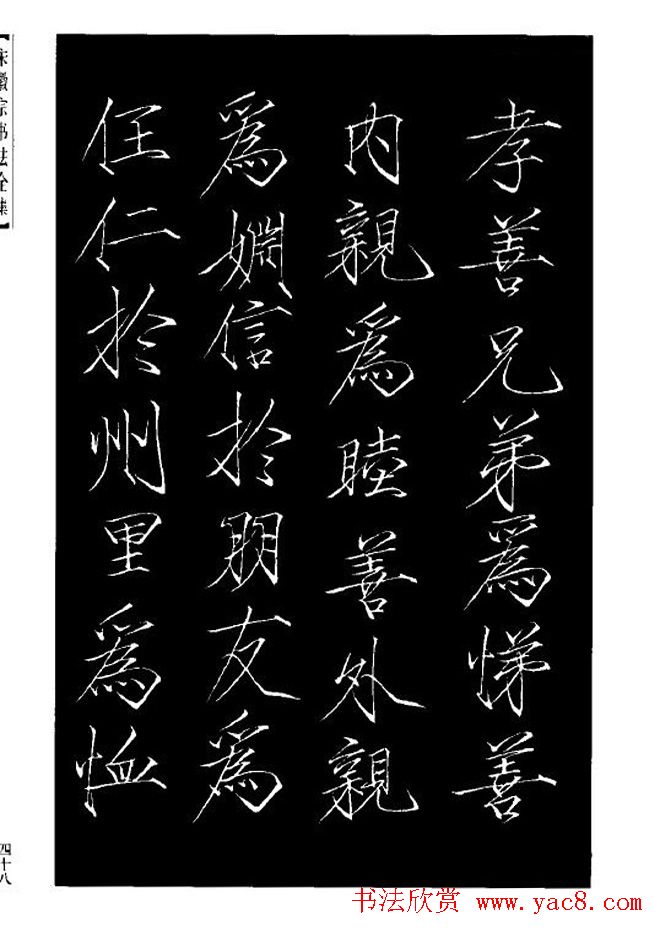 孝善兄弟爲悌善
內親爲睦善外親
爲婣信於朋友爲
任仁於州里爲恤
【宋徽宗书法全集】
四十八
书法欣赏 www.yac8.com